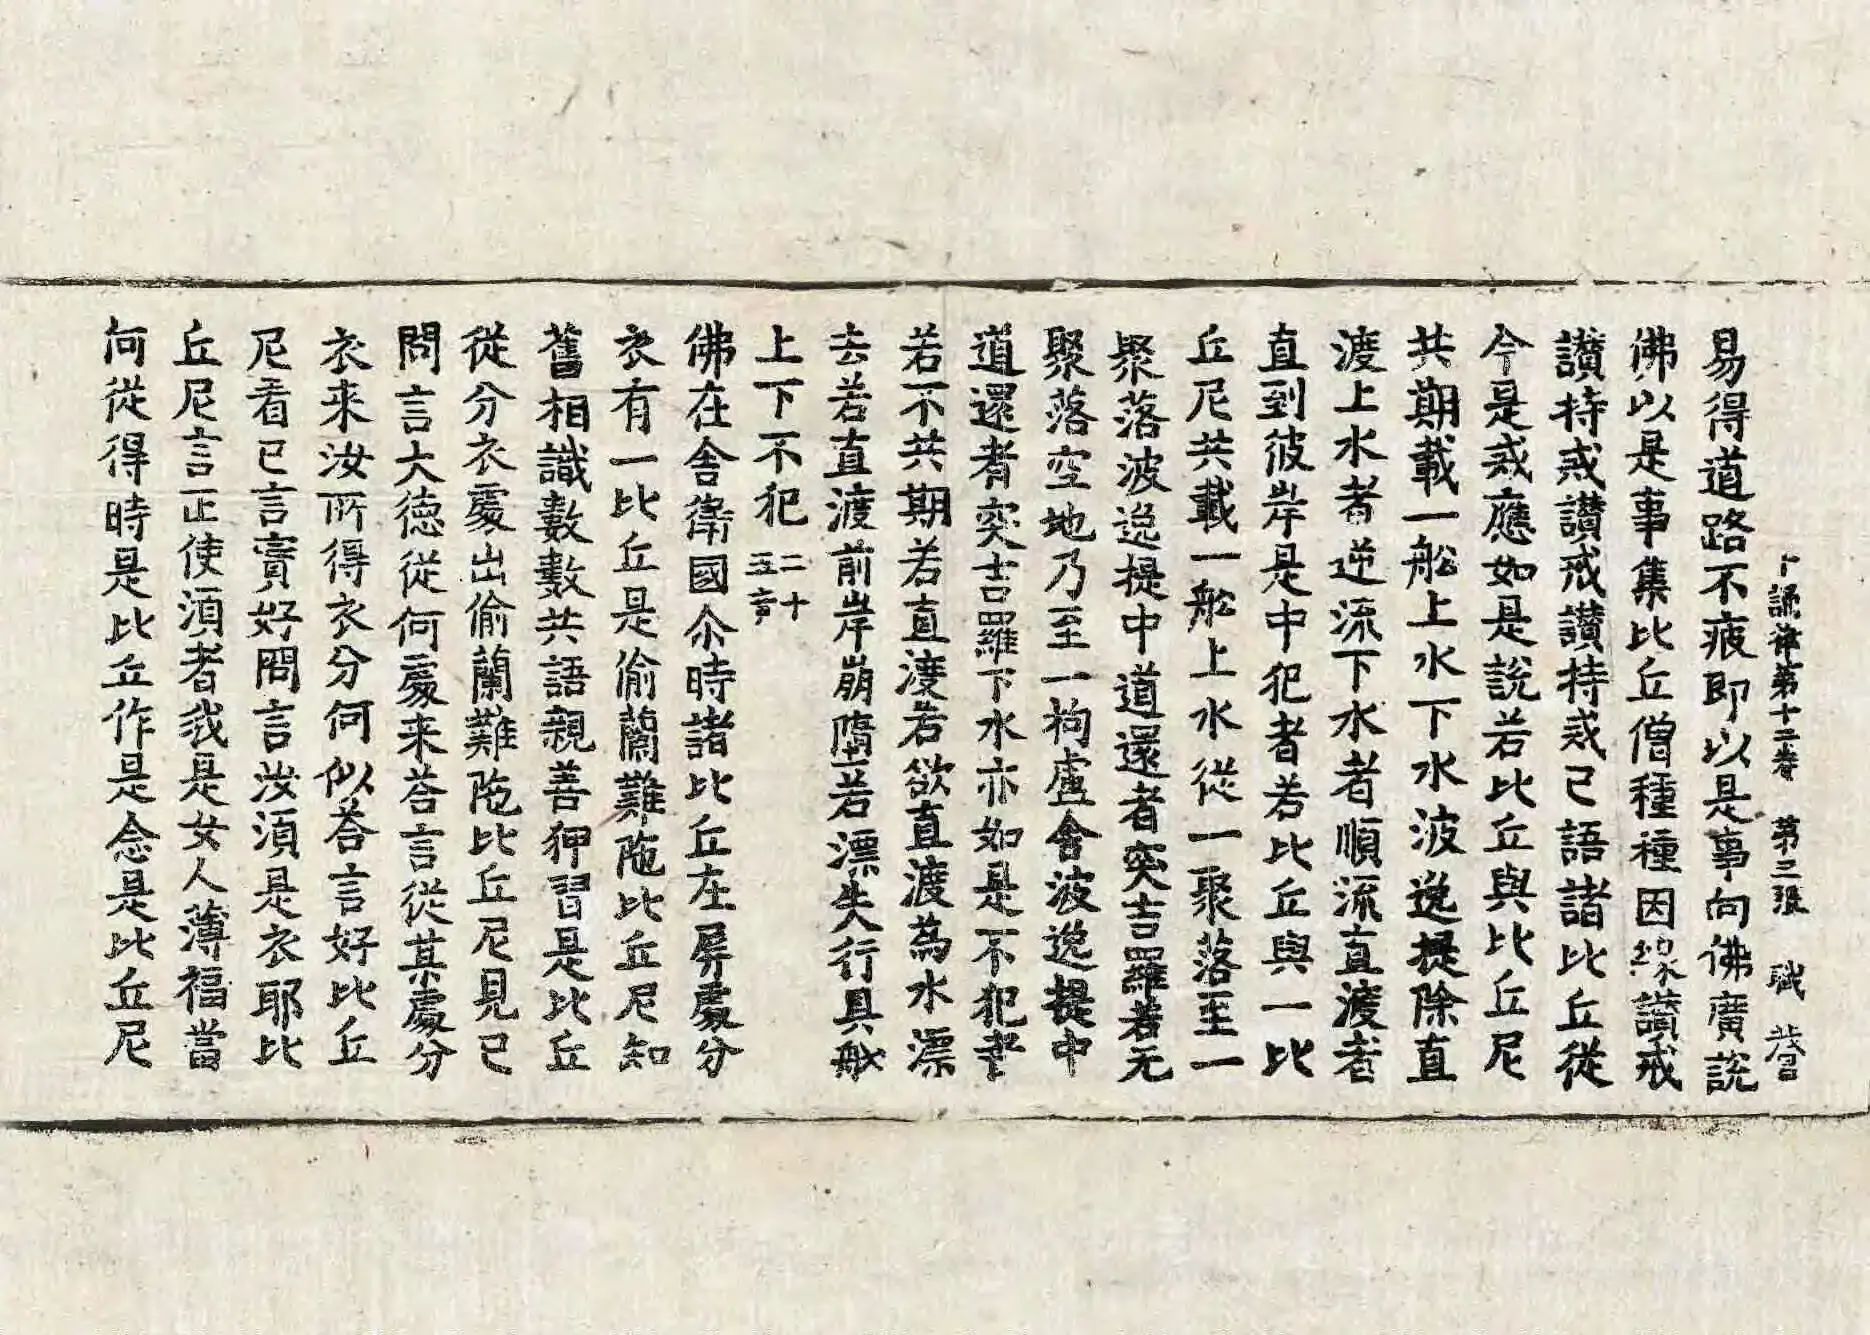 十誦律第十二卷 第三張 職
易得道路不疲即以是事向佛廣說
佛以是事集比丘僧種種因緣讃戒
讃持戒讃戒讃持戒已語諸比丘從
今是戒應如是說若比丘與比丘尼
共期載一船上水下水波逸提除直
渡上水者逆流下水者順流直渡者
直到彼岸是中犯者若比丘與一比
丘尼共載一船上水從一聚落至一
聚落波逸提中道還者突吉羅若无
聚落空地乃至一拘盧舍波逸提中
道還者突吉羅下水亦如是不犯者
若不共期若直渡若欲直渡為水漂
去若直渡前岸崩墮若漂失行具船
上下不犯 二十五竟
佛在舍衛國尒時諸比丘在屏處分
衣有一比丘是偷蘭難陁比丘尼知
舊相識數數共語親善狎習是比丘
從分衣處出偷蘭難陁比丘尼見已
問言大德從何處来荅言從某處分
衣来汝所得衣分何似荅言好比丘
尼看已言實好問言汝須是衣耶比
丘尼言正使須者我是女人薄福當
何從得時是比丘作是念是比丘尼